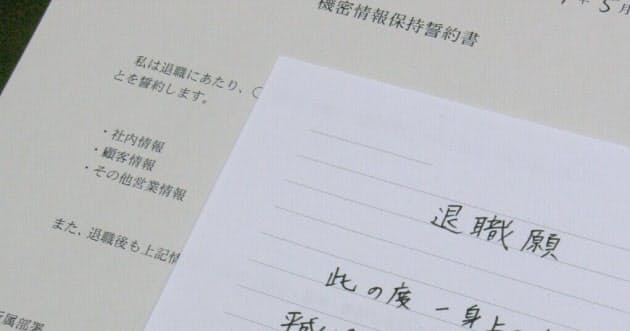 年5月
機密情報保持誓約書
私は退職にあたり、〇
とを誓約します。
・社内情報
・顧客情報
・その他営業情報
また、退職後も上記情
所属部署
退職願
此の度 一身上
平成